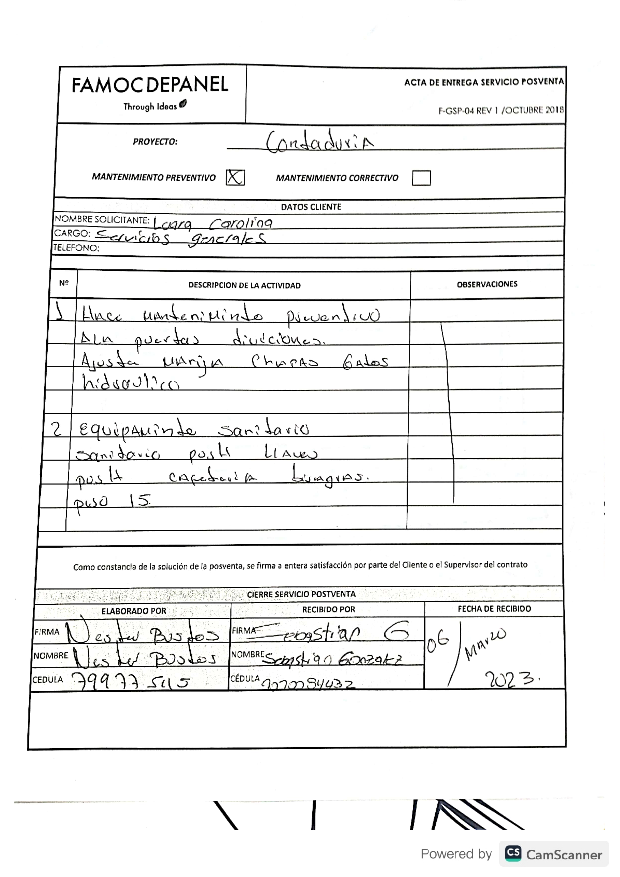 FAMOC DEPANEL
Through Ideas
ACTA DE ENTREGA SERVICIO POSVENTA
F-GSP-04 REV 1 /OCTUBRE 2018
PROYECTO: Contaduria
MANTENIMIENTO PREVENTIVO X MANTENIMIENTO CORRECTIVO
DATOS CLIENTE
NOMBRE SOLICITANTE: Laura Carolina
CARGO: Servicios generales
TELEFONO:
Nº DESCRIPCION DE LA ACTIVIDAD OBSERVACIONES
1 Hace manteniminto preventivo
Ala puertas diviciones.
Ajusta Marija Chapas Gatos
hidraulico
2 Equipaminto sanitario
sanitario push llaves
push cafeteria
piso 15
Como constancia de la solución de la posventa, se firma a entera satisfacción por parte del Cliente o el Supervisor del contrato
CIERRE SERVICIO POSTVENTA
ELABORADO POR RECIBIDO POR FECHA DE RECIBIDO
FIRMA Nestor Bustos FIRMA Sebastian G 06 / Marzo
NOMBRE Nestor Bustos NOMBRE Sebastian Gonzalez
2023.
CEDULA 79977545 CÉDULA
Powered by CS CamScanner